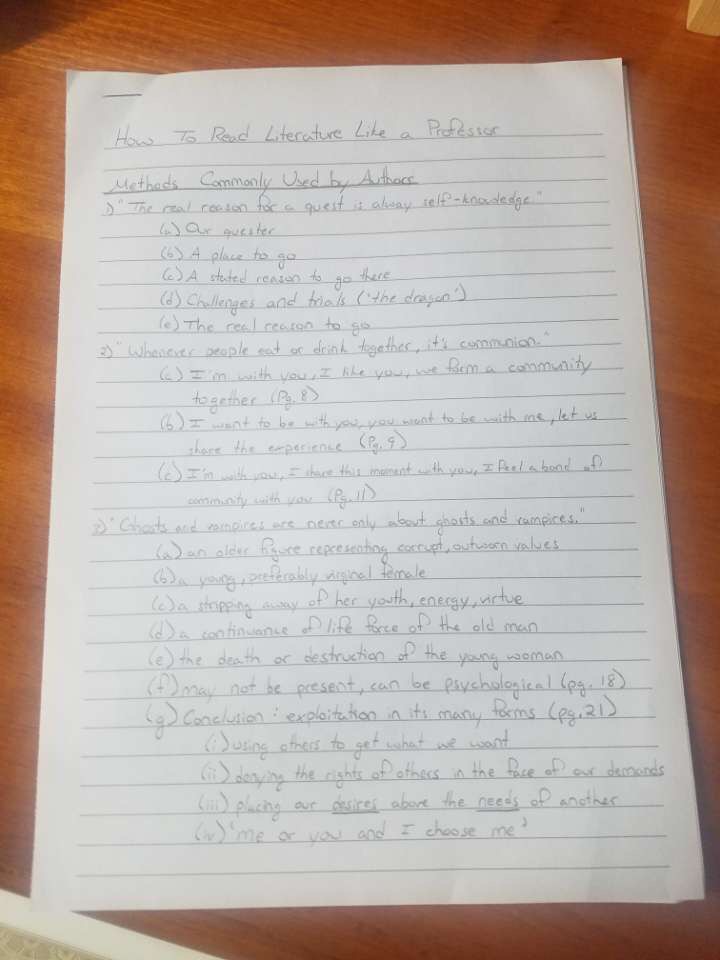 How To Read Literature Like a Professor
Methods Commonly Used by Authors
1) "The real reason for a quest is alway self-knowledge."
(a) Our quester
(b) A place to go
(c) A stated reason to go there
(d) Challenges and trials ('the dragon')
(e) The real reason to go
2) "Whenever people eat or drink together, it's communion."
(a) I'm with you, I like you, we form a community
together (Pg. 8)
(b) I want to be with you, you want to be with me, let us
share the experience (Pg. 9)
(c) I'm with you, I share this moment with you, I feel a bond of
community with you (Pg. 11)
3) "Ghosts and vampires are never only about ghosts and vampires."
(a) an older figure representing corrupt, outworn values
(b) a young, preferably virginal female
(c) a stripping away of her youth, energy, virtue
(d) a continuance of life force of the old man
(e) the death or destruction of the young woman
(f) may not be present, can be psychological (pg. 18)
(g) Conclusion: exploitation in its many forms (pg. 21)
(i) using others to get what we want
(ii) denying the rights of others in the face of our demands
(iii) placing our desires above the needs of another
(iv) 'me or you and I choose me'